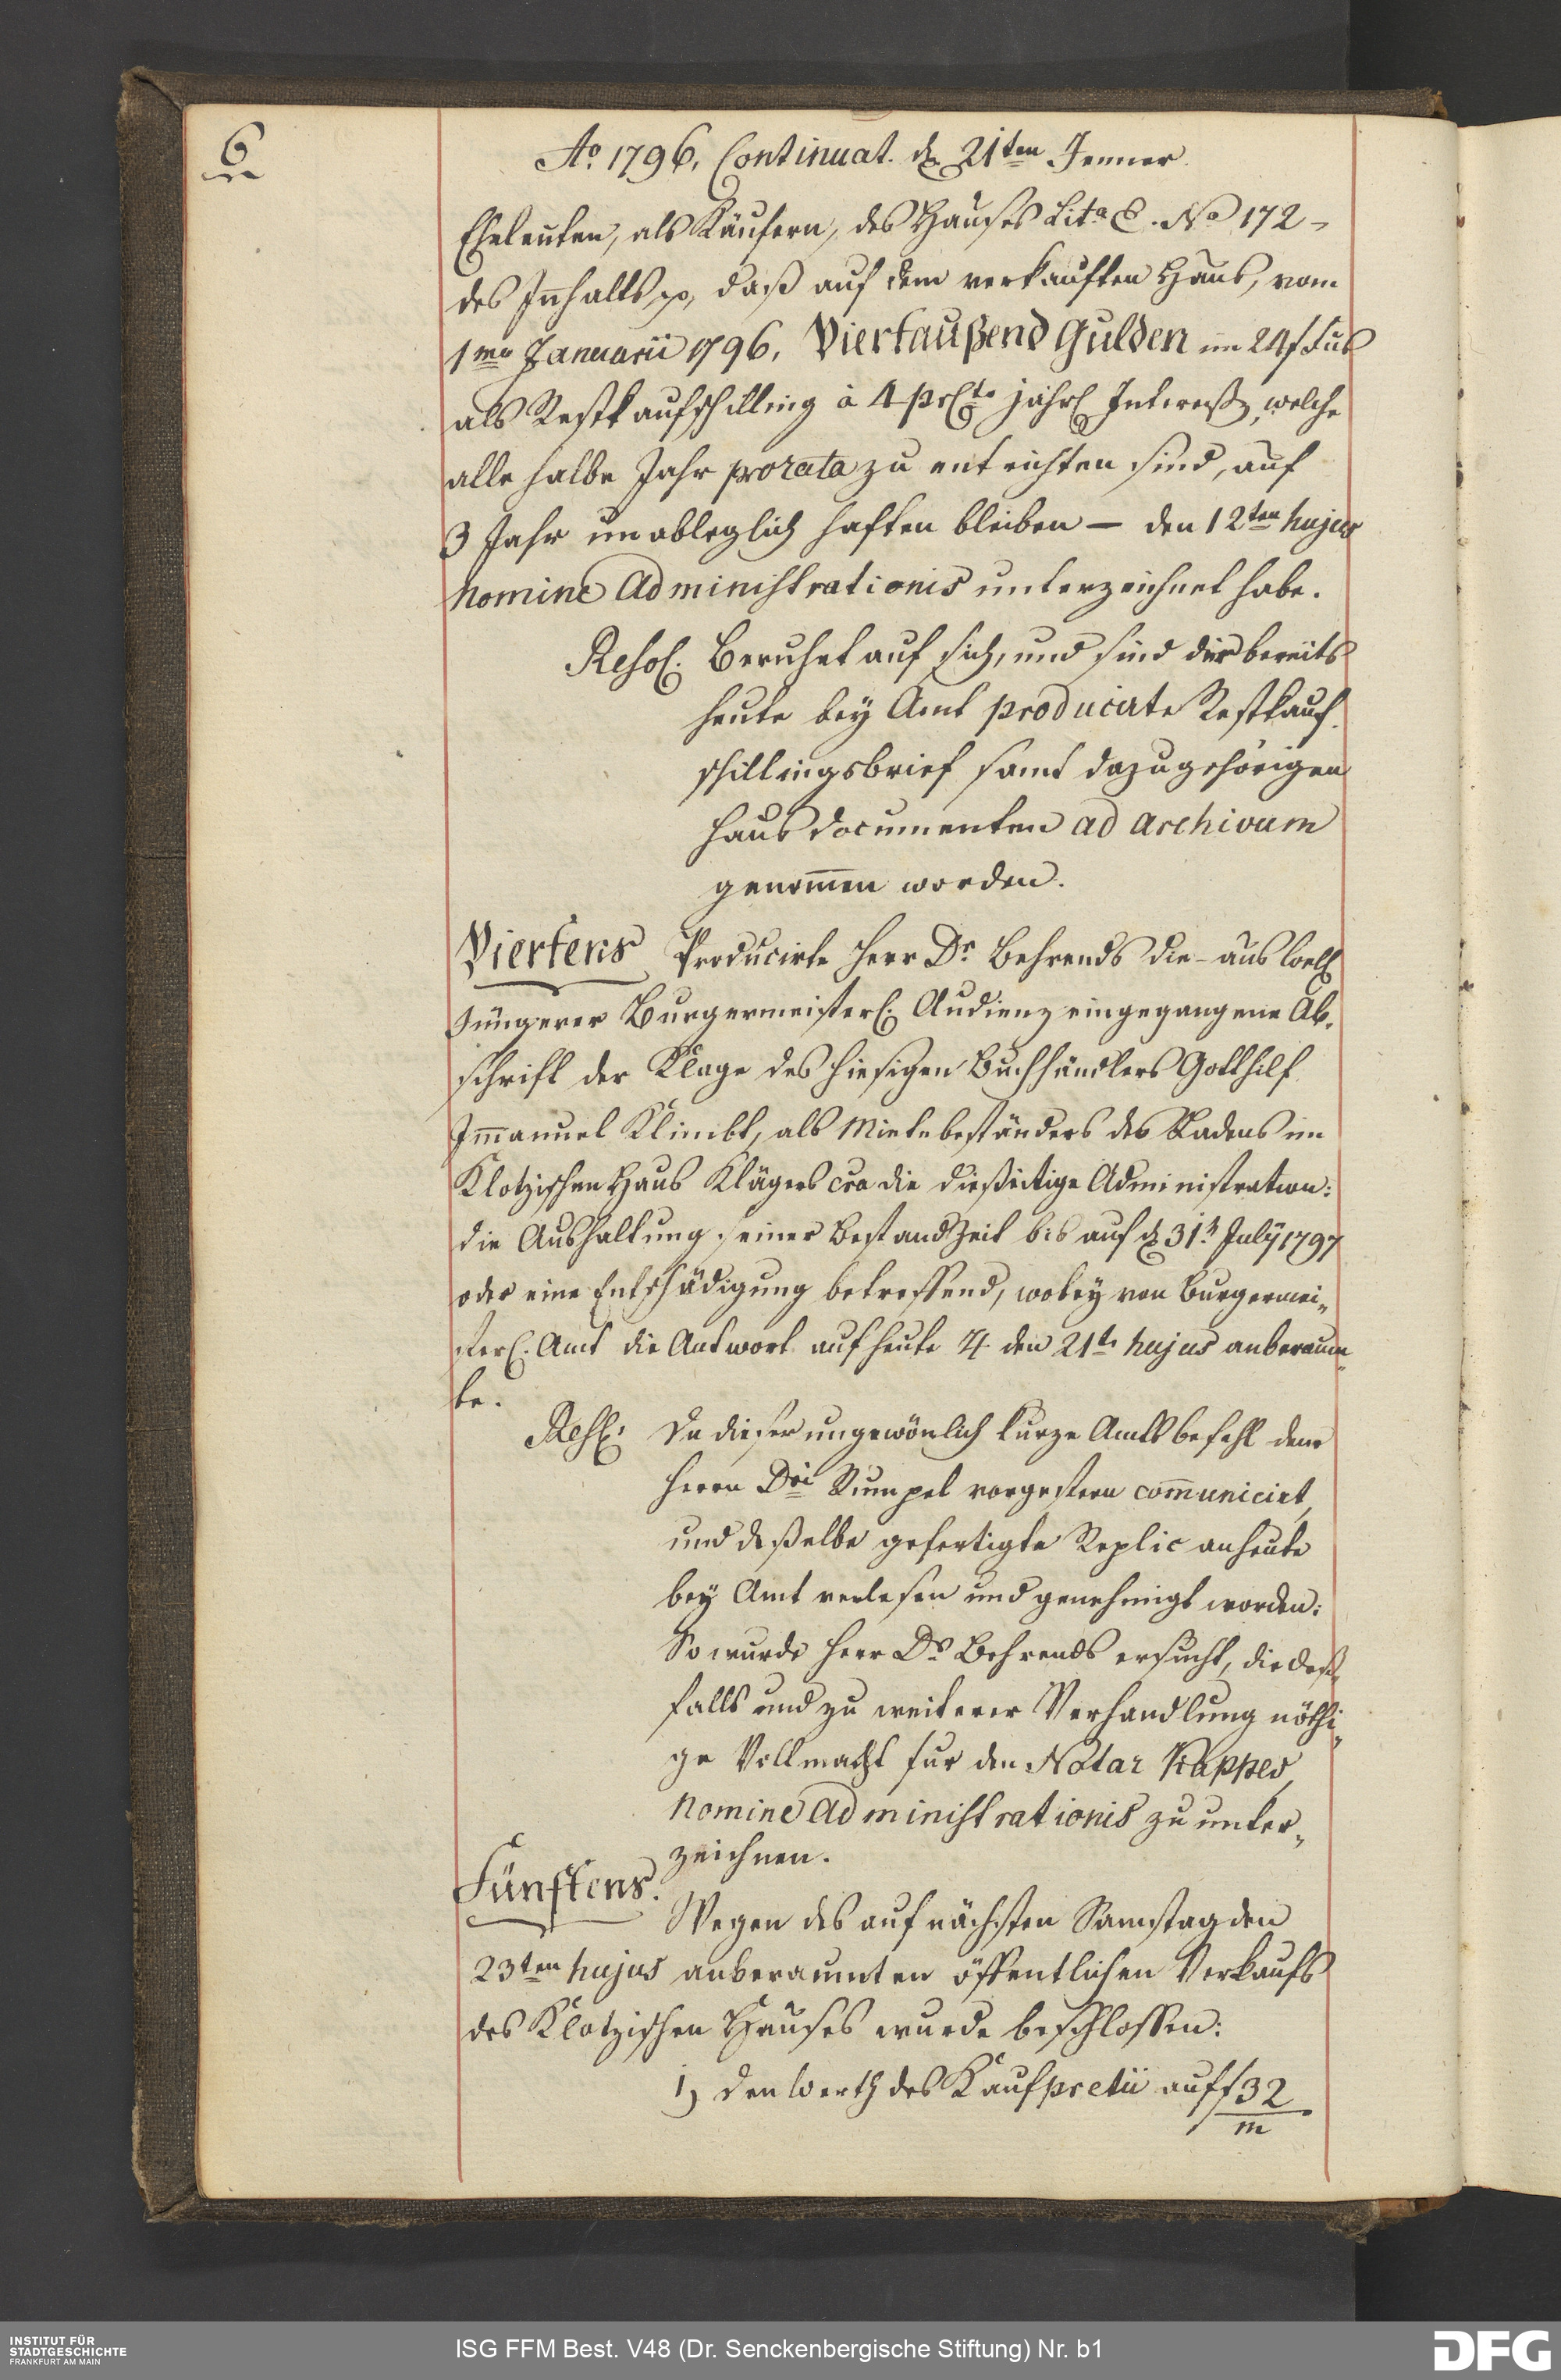 6
Ao. 1796. Continuat. d. 21ten Jenner.
Eheleuten, als Käufern, des Hauses Lita. E. No 172 -
des Innhalts p, daß auf dem verkauften Haus, vom
1mo Januarii 1796. Viertaußend Gulden im 24f Fus
als Restkaufschilling à 4 prCto jährl Interesse, welche
alle halbe Jahr prorata zu entrichten sind, auf
3 Jahr unableglich haften bleiben — den 12ten hujus
Nomine Administrationis unterzeichnet habe.
Resol. Beruhet auf sich, und sind der bereits
heute bey Amt producirte Restkauf-
schillingsbrief samt dazugehörigen
Hausdocumenten ad archivum
genom̄en worden.
Viertens Producirte Herr Dr Behrends die - aus Löbl
Jüngerer Burgermeisterl. Audienz eingegangene Ab-
schrift der Klage des hiesigen Buchhändlers Gotthilf
Im̄anuel Klimbt, als Mietebeständers des Ladens im
Klotzischen Haus Klägers cra die dießeitige Administration:
die Aushaltung seiner Bestandzeit bis auf d 31t July 1797
oder eine Entschädigung betreffend, wobey von Burgermei-
sterl. Amt die Antwort auf heute 4 den 21t hujus anberaum-
te.
Resl. Da dieser ungewönlich kurze Amtsbefehl dem
Herrn Dri Rumpel vorgestern com̄unicirt,
und deßelbe gefertigte Replic anheute
bey Amt verlesen und genehmigt worden:
So wurde Herr Dr Behrends ersucht, die deß-
falls und zu weiterer Verhandlung nöthi-
ge Vollmacht fur den Notar Kappes,
Nomine Administrationis zu unter-
zeichnen.
Fünftens.
Wegen des auf nächsten Samstag den
23ten hujus anberaumten öffentlichen Verkaufs
des Klotzischen Hauses wurde beschlossen:
1) den Werth des Kaufpretii auf f 32
m
INSTITUT FÜR
STADTGESCHICHTE
FRANKFURT AM MAIN
ISG FFM Best. V48 (Dr. Senckenbergische Stiftung) Nr. b1
DFG